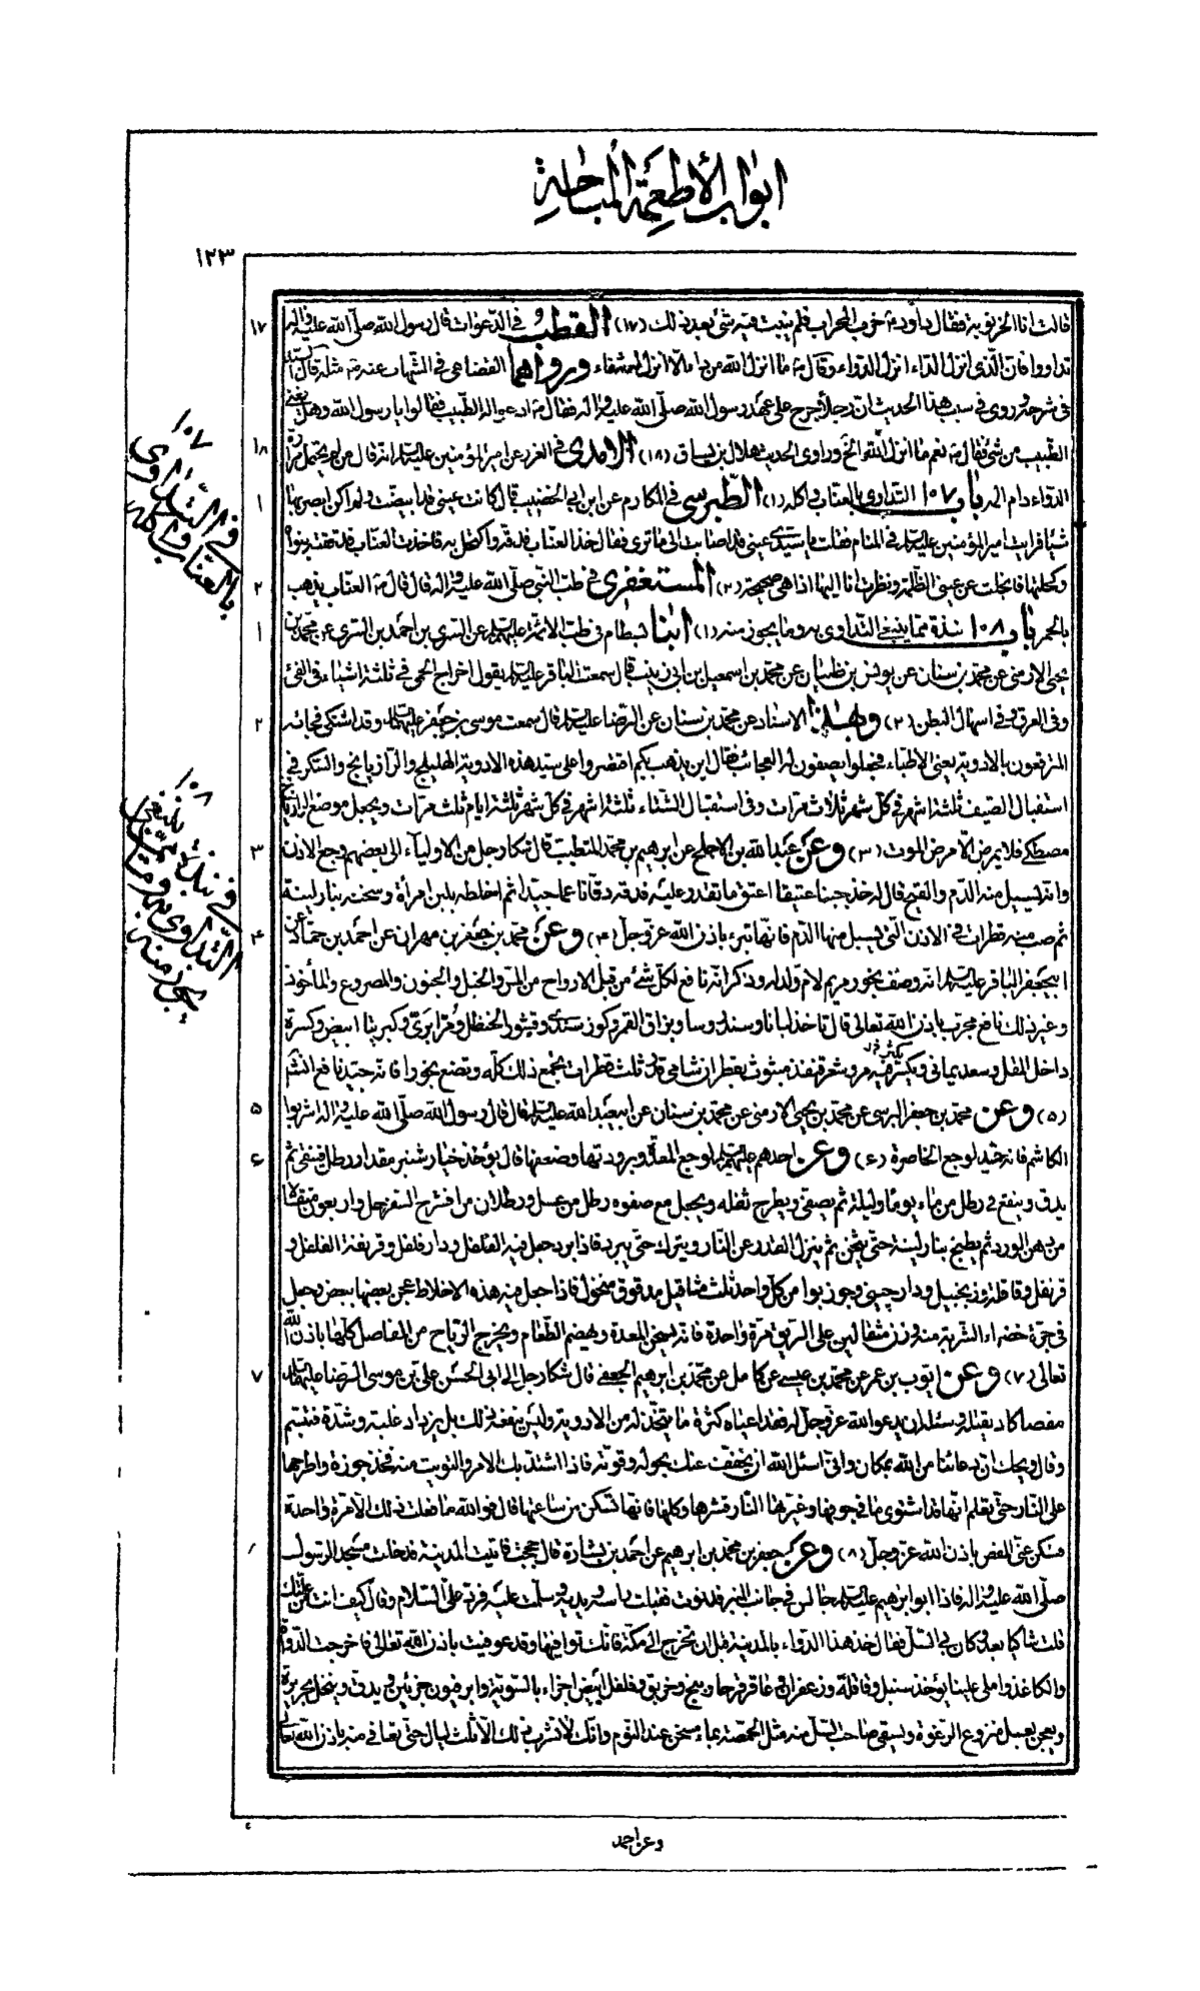 ابواب الأطعمة المباحة
١٢٣
قالت انا الخرنوبة فقال داود ع خرب المحراب فلم ينبت فيه شئ بعد ذلك (١٧) القطب في الدعوات قال رسول الله صلى الله عليه واله
١٧
تداووا فان الذى انزل الداء انزل الدواء وقال ص ما انزل الله من داء الا انزل له شفاء وروٰهما القضاعى فى الشهاب عنه ص مثله قال
فى شرحه وروى فى سبب هذا الحديث ان رجلا جرح على عهد رسول الله صلى الله عليه واله فقال ص ادعوا له الطبيب فقالوا يا رسول الله وهل يغنى
الطبيب من شئ فقال ص نعم ما انزل الله الخ وراوى الحديث هلال بن يساق (١٨) الامدى فى الغرر عن امير المؤمنين عليه السلام انه قال من لم يحتمل مرارة
١٨
الدواء دام المه باب ١٠٧ التداوى بالعناب واكله (١) الطبرسى فى المكارم عن ابن ابى الخضيب قال كانت عينى قد ابيضت ولم اكن ابصر بها
١
شيئا فرايت امير المؤمنين عليه السلام فى المنام فقلت يا سيدى عينى قد اصابت الى ما ترى فقال خذ العناب فدقه واكتحل به فاخذت العناب فدققته بنواه
وكحلتها فانجلت عن عينى الظلمة ونظرت انا اليها اذا هى صحيحة (٢) المستغفرى فى طب النبى صلى الله عليه واله قال قال ص العناب يذهب
٢
بالحمى باب ١٠٨ نبذة مما ينبغى التداوى به وما يجوز منه (١) ابنا بسطام فى طب الائمة عليهم السلام عن السرى بن احمد بن السرى عن محمد بن
١
يحيى الارمنى عن محمد بن سنان عن يونس بن ظبيان عن محمد بن اسمعيل بن ابى زينب قال سمعت الباقر عليه السلام يقول اخراج الحمى فى ثلثة اشياء فى القئ
وفى العرق وفى اسهال البطن (٢) وبهذا الاسناد عن محمد بن سنان عن الرضا عليه السلام قال سمعت موسى بن جعفر عليهما السلام وقد اشتكى فجائه
٢
المترفعون بالادوية يعنى الاطباء فجعلوا يصفون له العجائب فقال اين يذهب بكم اقتصروا على سيد هذه الادوية الهليلج والرازيانج والسكر فى
استقبال الصيف ثلثة اشهر فى كل شهر ثلاث مرات وفى استقبال الشتاء ثلثة اشهر فى كل شهر ثلثة ايام ثلث مرات ويجعل موضع الرازيانج
مصطكى فلا يمرض الا مرض الموت (٣) وعن عبد الله بن الاجلح عن ابرهيم بن محمد المتطبب قال شكا رجل من الاولياء الى بعضهم وجع الاذن
٣
وانه يسيل منه الدم والقيح قال له خذ جبنا عتيقا اعتق ما تقدر عليه فدقه دقا ناعما جيدا ثم اخلطه بلبن امرأة وسخنه بنار لينة
ثم صب منه قطرات فى الاذن التى يسيل منها الدم فانها تبرء باذن الله عز وجل (٤) وعن محمد بن جعفر بن مهران عن احمد بن حماد عن
٤
ابيجعفر الباقر عليه السلام انه وصف بخور مريم لام ولد له وذكر انه نافع لكل شئ من قبل الارواح من المس والخبل والجنون والمصروع والمأخوذ
وغير ذلك نافع مجرب باذن الله تعالى قال تاخذ لبانا وسندروسا وبزاق القمر وكوز سندى وقشور الحنظل و برى وكبريتا ابيض وكسرة
داخل المقل وسعد يمانى ويكسر فيه مر وشعر قنفذ مبثوث بقطران شامى قدر ثلث قطرات يجمع ذلك كله وتصنع بخورا فانه جيد نافع انشاء
(٥) وعن محمد بن جعفر البرسى عن محمد بن يحيى الارمنى عن محمد بن سنان عن ابيعبد الله عليه السلام قال قال رسول الله صلى الله عليه واله اشربوا
٥
الكاشم فانه جيد لوجع الخاصرة (٦) وعن احدهم عليهم السلام لوجع المعدة وبرودتها وضعفها قال يؤخذ خيارشنبر مقدار رطل فينقى ثم
٦
يدق وينقع فى رطل من ماء يوما وليلة ثم يصفى ويطرح ثفله ويجعل مع صفوه رطل من عسل ورطلان من افشرج السفرجل واربعون مثقالا
من دهن الورد ثم يطبخ بنار لينة حتى يثخن ثم ينزل القدر عن النار ويترك حتى يبرد فاذا برد جعل فيه الفلفل ودار فلفل وقرفة القرنفل و
قرنفل وقاقلة وزنجبيل ودارچينى وجوزبوا من كل واحد ثلث مثاقيل مدقوق منخول فاذا جعل فيه هذه الاخلاط عجن بعضها ببعض وجعل
فى جرة خضراء الشربة منه وزن مثقالين على الريق مرة واحدة فانه يسخن المعدة ويهضم الطعام ويخرج الرياح من المفاصل كلها باذن الله
تعالى (٧) وعن ايوب بن عمر عن محمد بن عيسى عن كامل عن محمد بن ابرهيم الجعفى قال شكا رجل الى ابى الحسن على بن موسى الرضا عليهما السلام
٧
مغصا كاد يقتله وسئله ان يدعو الله عز وجل له فقد اعياه كثرة ما يتخذ له من الادوية وليس ينفعه ذلك بل يزداد غلبة وشدة فتبسم
وقال ويحك ان دعائنا من الله بمكان وانى اسئل الله ان يخفف عنك بحوله وقوته فاذا اشتد بك الامر والتويت منه فخذ جوزة واطرحها
على النار حتى تعلم انها قد اشتوى ما فى جوفها وغيرتها النار قشرها وكلها فانها تسكن من ساعتها قال فوالله ما فعلت ذلك الا مرة واحدة
فسكن عنى المغص باذن الله عز وجل (٨) وعن جعفر بن محمد بن ابرهيم عن احمد بن بشارة قال حججت فاتيت المدينة فدخلت مسجد الرسول
صلى الله عليه واله فاذا ابو ابرهيم عليه السلام جالس فى جانب المنبر فدنوت فقبلت راسه ويديه وسلمت عليه فرد على السلام وقال كيف انت من علتك
قلت شاكيا بعد وكان بى السل فقال خذ هذا الدواء بالمدينة قبل ان تخرج الى مكة فانك توافيها وقد عوفيت باذن الله تعالى فاخرجت الدواة
والكاغذ واملى علينا يؤخذ سنبل وقاقلة وزعفران وعاقرقرحا وبنج وخربق وفلفل ابيض اجزاء بالسوية وابرفيون جزئين ويدق وينخل بحريرة
ويعجن بعسل منزوع الرغوة ويسقى صاحب السل منه مثل الحمصة بماء مسخن عند النوم وانك لا تشرب ذلك الا ثلث ليال حتى تعافى منه باذن الله تعالى
١٠٧
فى التداوى
بالعناب واكله
١٠٨
فى نبذة مما ينبغى
التداوى به وما
يجوز منه
وعن احمد